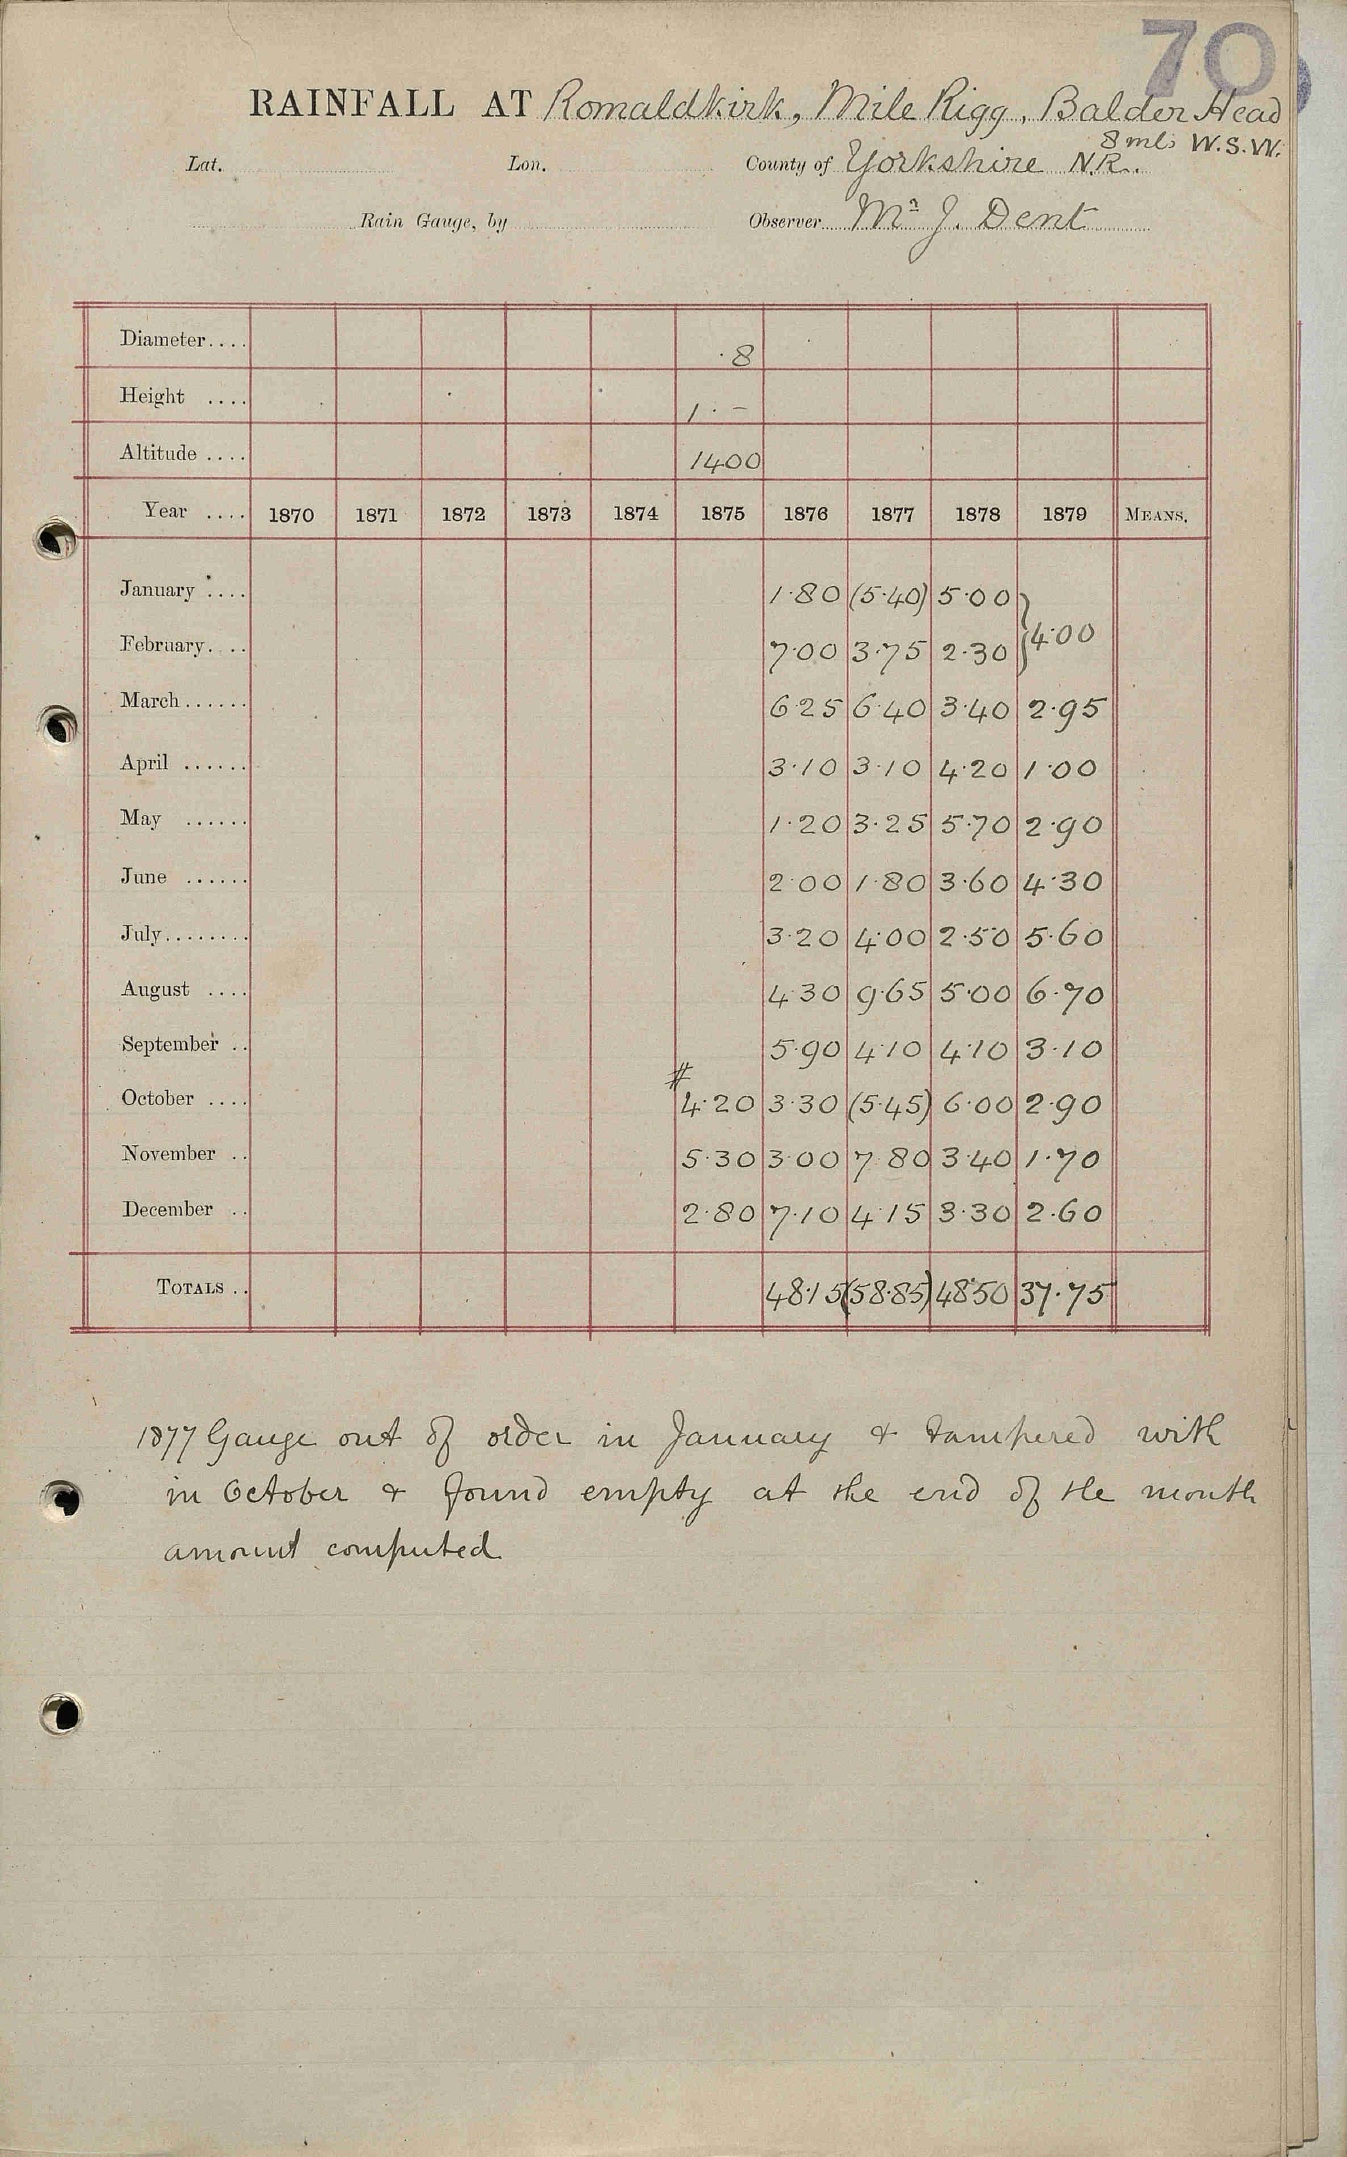 70
RAINFALL AT Romaldkirk, Mile Rigg, Balder Head
8 mls W.S.W.
Lat. Lon. County of Yorkshire N.R.
Rain Gauge, by Observer Mr J. Dent
Diameter.... ·8
Height .... 1·–
Altitude .... 1400
Year .... 1870 1871 1872 1873 1874 1875 1876 1877 1878 1879 MEANS.
January .... 1·80 (5·40) 5·00
February. .. 7·00 3·75 2·30 } 4·00
March...... 6·25 6·40 3·40 2·95
April ...... 3·10 3·10 4·20 1·00
May ...... 1·20 3·25 5·70 2·90
June ...... 2·00 1·80 3·60 4·30
July........ 3·20 4·00 2·50 5·60
August .... 4·30 9·65 5·00 6·70
September .. 5·90 4·10 4·10 3·10
October .... # 4·20 3·30 (5·45) 6·00 2·90
November .. 5·30 3·00 7·80 3·40 1·70
December .. 2·80 7·10 4·15 3·30 2·60
TOTALS .. 48·15 (58·85) 48·50 37·75
1877 Gauge out of order in January & tampered with
in October & found empty at the end of the month
amount computed